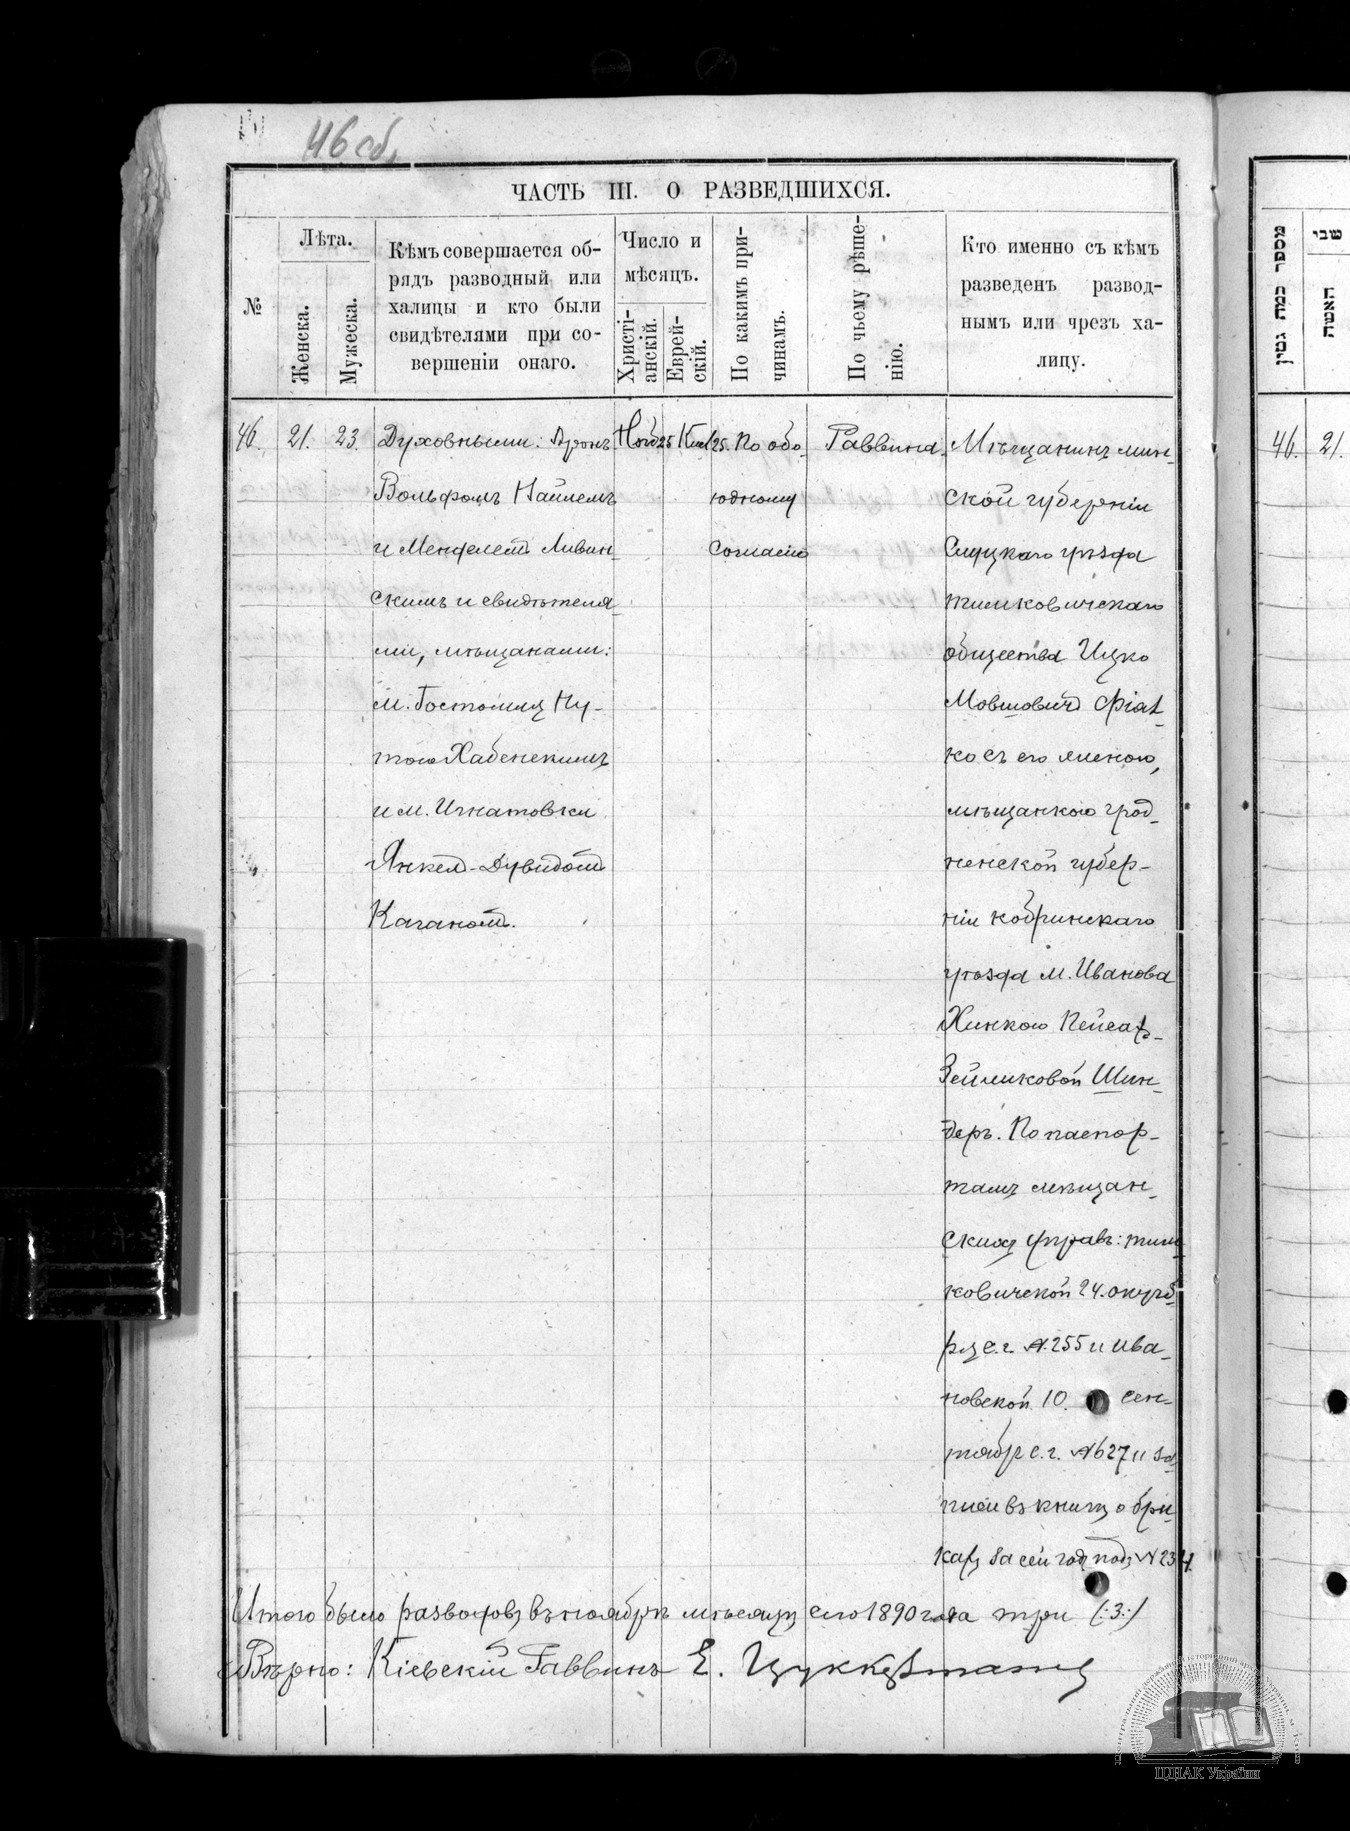 46 об.
ЧАСТЬ III. О РАЗВЕДШИХСЯ.
№
Лѣта.
Женска.
Мужеска.
Кѣмъ совершается об-
рядъ разводный или
халицы и кто были
свидѣтелями при со-
вершеніи онаго.
Число и
мѣсяцъ.
Христі-
анскій.
Еврей-
скій.
По какимъ при-
чинамъ.
По чьему рѣше-
нію.
Кто именно съ кѣмъ
разведенъ развод-
нымъ или чрезъ ха-
лицу.
46. 21. 23.
Духовными: Арон-
Вольфомъ Наймемъ
и Менделемъ Ливин-
скимъ и свидѣтеля-
ми, мѣщанами:
м. Гостомля Ну-
тою Хабенскимъ
и м. Игнатовки
Янкел-Дувидомъ
Каганомъ.
Нояб 25
Кисл 25.
По обо-
юдному
согласію
Раввина.
Мѣщанинъ мин-
ской губерніи
Слуцкаго уѣзда
тимковичскаго
общества Ицко
Мовшовичъ Фіал-
ко съ его женою,
мѣщанкою грод-
ненской губер-
ніи кобринскаго
уѣзда м. Иванова
Хинкою Пейсах-
Зейликовой Шин-
деръ. По паспор-
тамъ мѣщан-
скихъ управъ: тим-
ковичской 24. октяб-
ря с. г. № 255 и ива-
новской 10. сен-
тября с. г. № 627 и за-
писи въ книгѣ о бра-
кахъ за сей годъ подъ № 234.
Итого было разводовъ въ ноябрѣ мѣсяцѣ сего 1890 года три (:3:)
Вѣрно: Кіевскій Раввинъ Е. Цуккерманъ
מספר כמה גטין
שני
האשה
46. 21.
ЦДІАК України